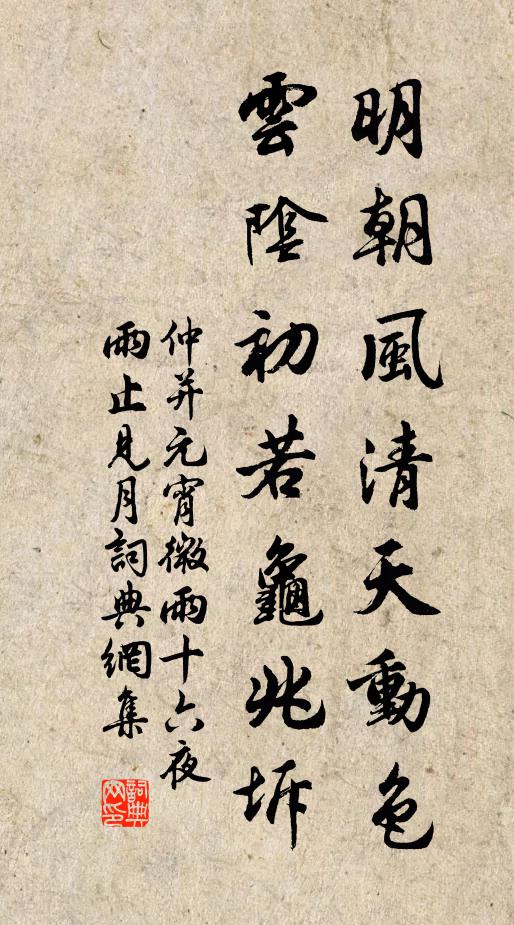 明朝風清天動色
雲陰初若龜兆坼
仲并元宵微雨十六夜
雨止見月詞典網集
詞典
网印